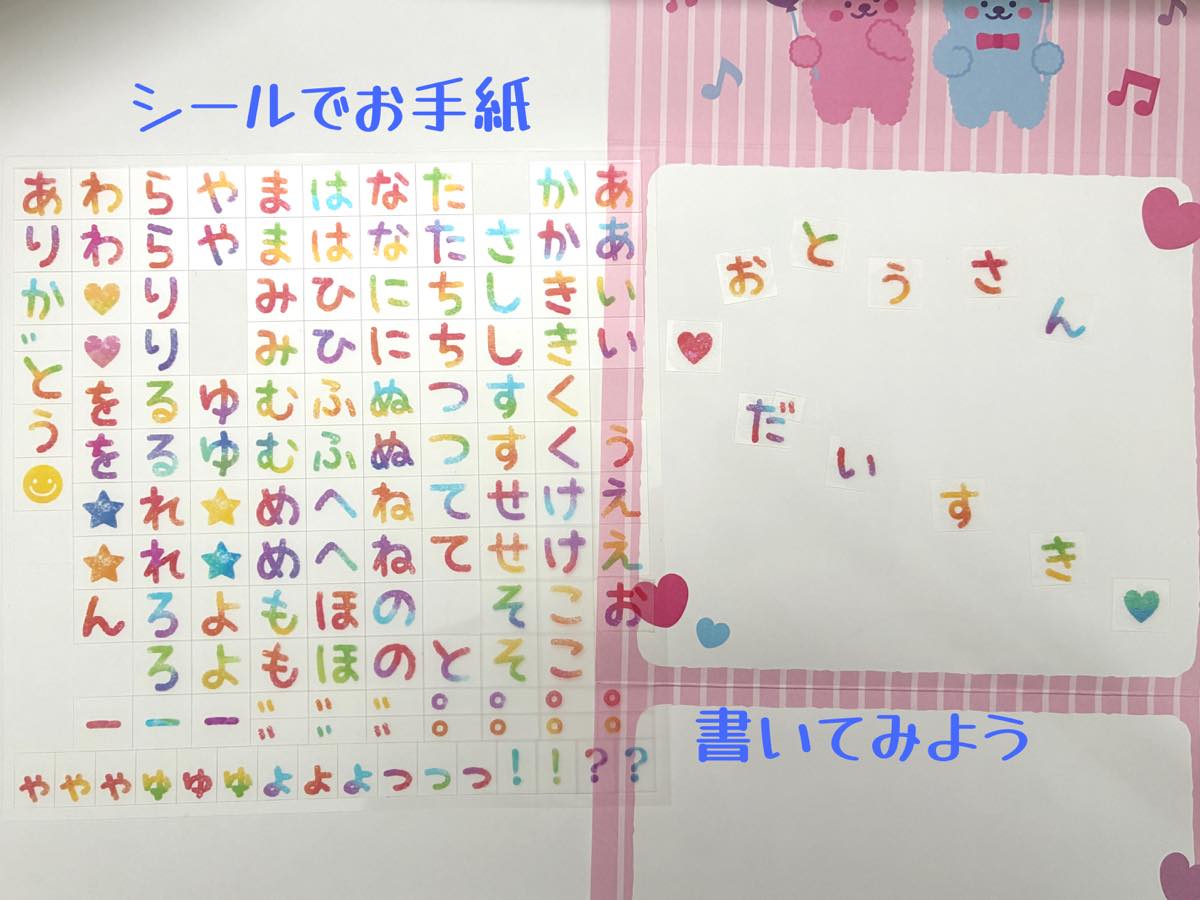 シールでお手紙
あ わ ら や ま は な た か あ
り わ ら や ま は な た さ か あ
か り み ひ に ち し き い
゛ り み ひ に ち し き い
と を る ゆ む ふ ぬ つ す く
う を る ゆ む ふ ぬ つ す く う
れ め へ ね て せ け え
れ め へ ね て せ け え
ん ろ よ も ほ の そ こ お
ろ よ も ほ の と そ こ
ー ー ー ゛ ゛ ゛ ゜ ゜ ゜ ゜
゛ ゛ ゛ ゜ ゜ ゜ ゜
ゃ ゃ ゃ ゅ ゅ ゅ ょ ょ ょ っ っ っ ! ! ? ?
おとうさん
だいすき
書いてみよう